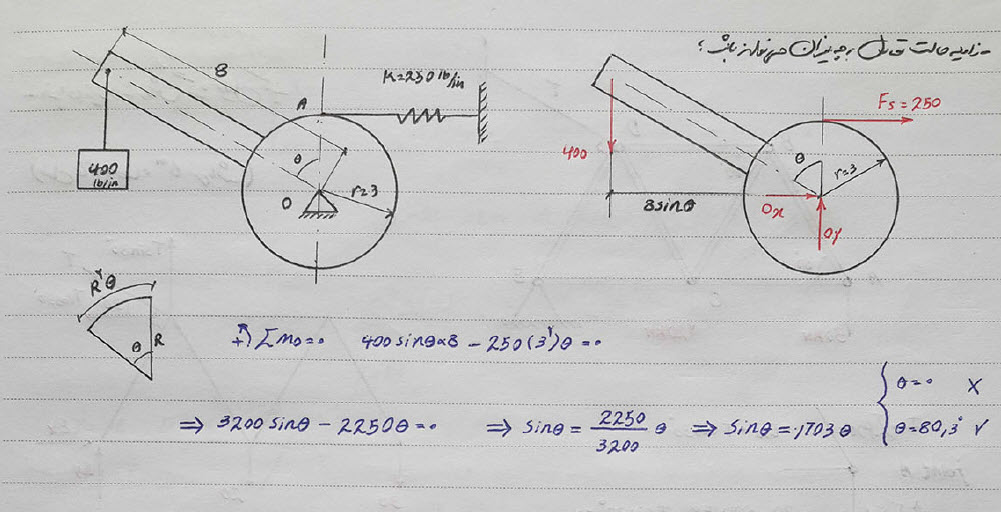 زاویه حالت تعادل به چه میزان می تواند باشد؟
8
A
K=250 lb/in
θ
400
lb/in
O
r=3
Fs = 250
400
θ
r=3
8sinθ
Ox
Oy
R²θ
θ
R
+) ΣMo=0 400 sinθ×8 - 250(3²)θ = 0
⇒ 3200 sinθ - 2250θ = 0 ⇒ sinθ = 2250/3200 θ ⇒ sinθ = ,703 θ
θ=0 X
θ=80,3° √